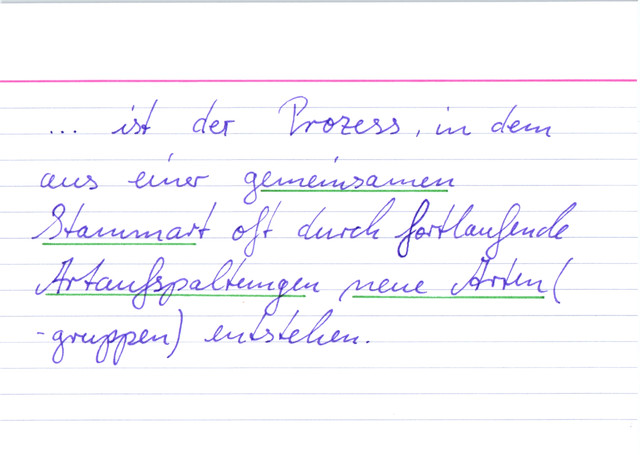 ... ist der Prozess, in dem
aus einer gemeinsamen
Stammart oft durch fortlaufende
Artaufspaltungen neue Arten(
-gruppen) entstehen.